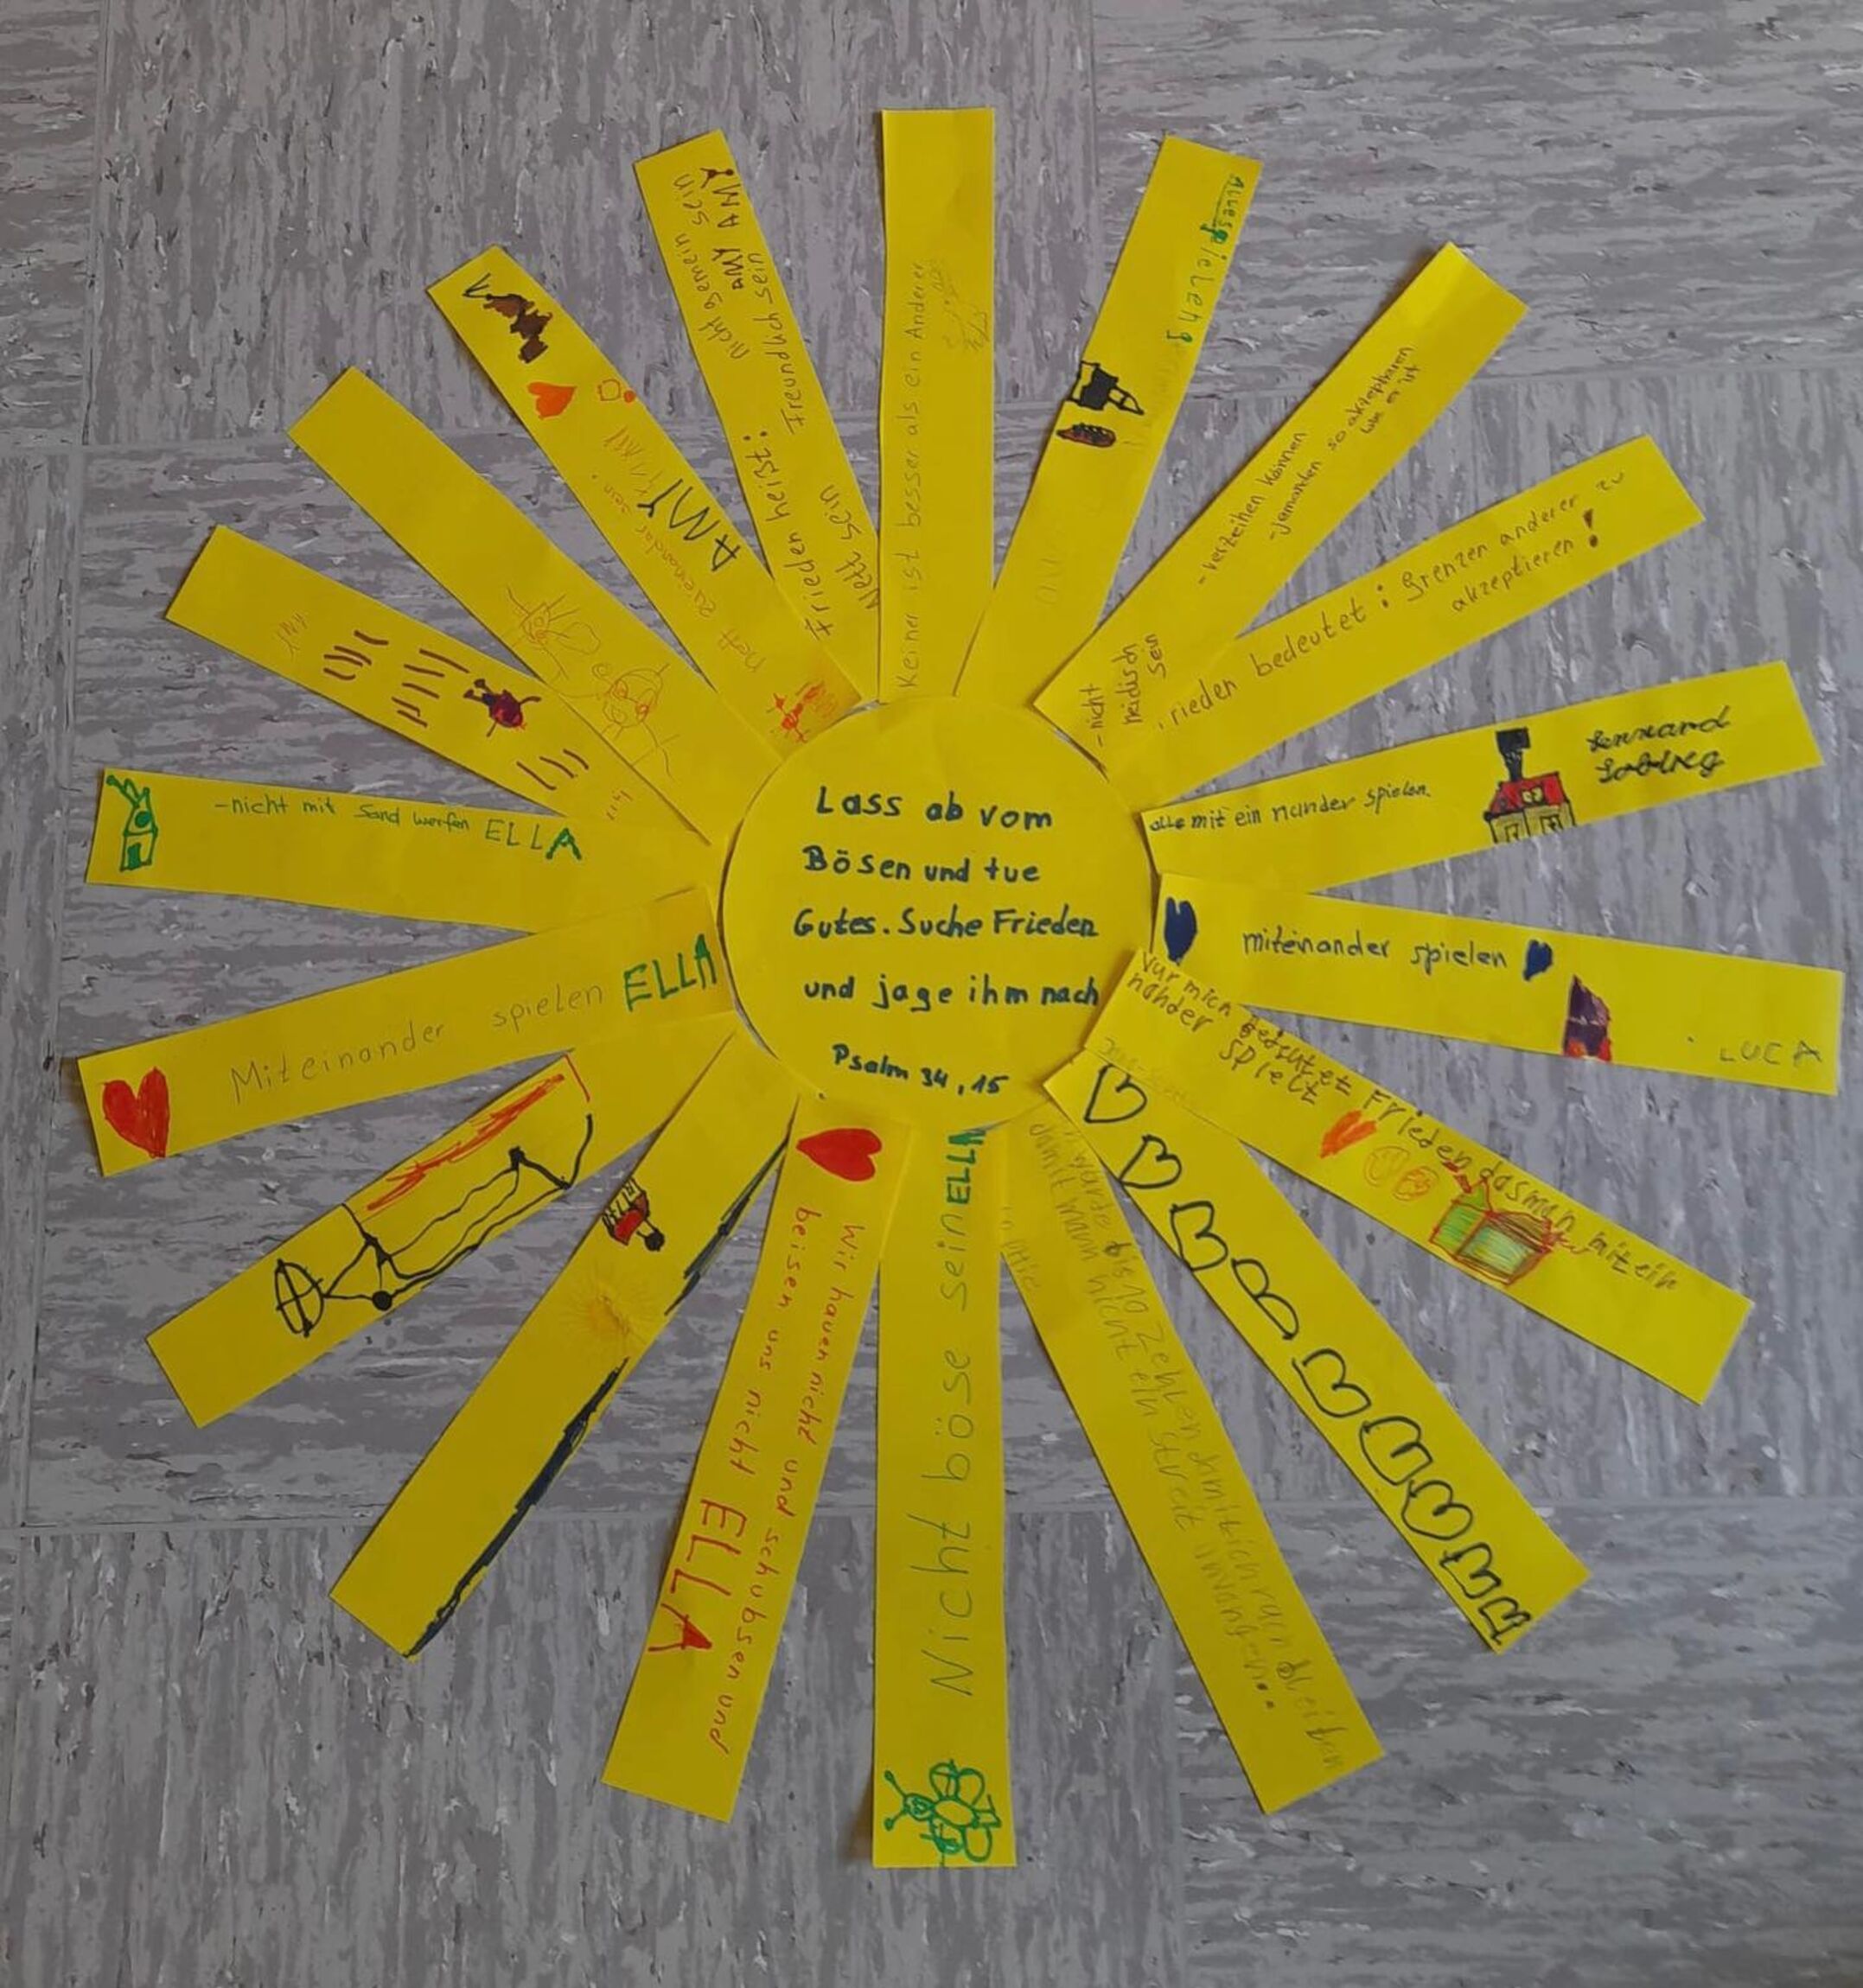 Lass ab vom
Bösen und tue
Gutes. Suche Frieden
und jage ihm nach
Psalm 34,15
Keiner ist besser als ein Anderer
- verzeihen können
- jemanden so akzeptieren
wie er ist
- nicht
neidisch
sein
rieden bedeutet: Grenzen anderer zu
akzeptieren!
alle mit ein nander spielen.
Lennard
miteinander spielen
LUCA
Vur mich bedeutet Frieden dasman mit ein
nander spielt
warte bis 10 Zehlen damit ich ruich bleiben
damit mann nicht ein streit
Nicht böse sein
ELLA
Wir hauen nicht und schubsen und
beisen uns nicht ELLA
Miteinander spielen ELLA
-nicht mit Sand werfen ELLA
nett zueinander sein
AMY
Frieden heißt:
nicht gemein sein
AMY AMY
Freundlich sein
Nett sein